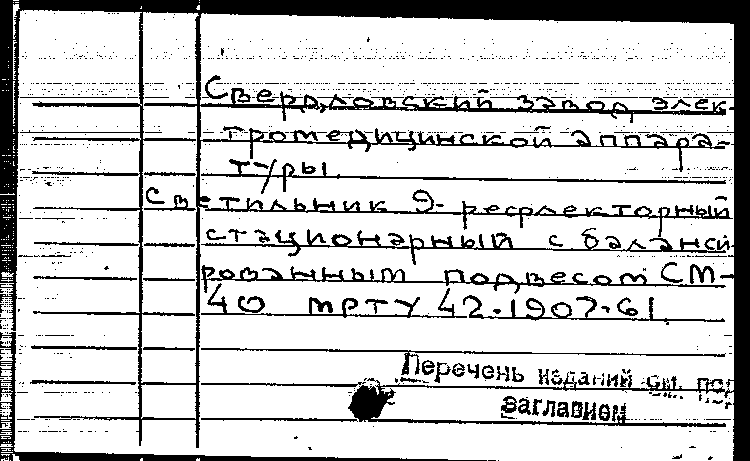 Свердловский завод элек-
тромедицинской аппара-
туры.
Светильник 9-рефлекторный
стационарный с баланси
рованным подвесом СМ-
40 МРТУ 42-1907-61.
Перечень изданий см. под
заглавием